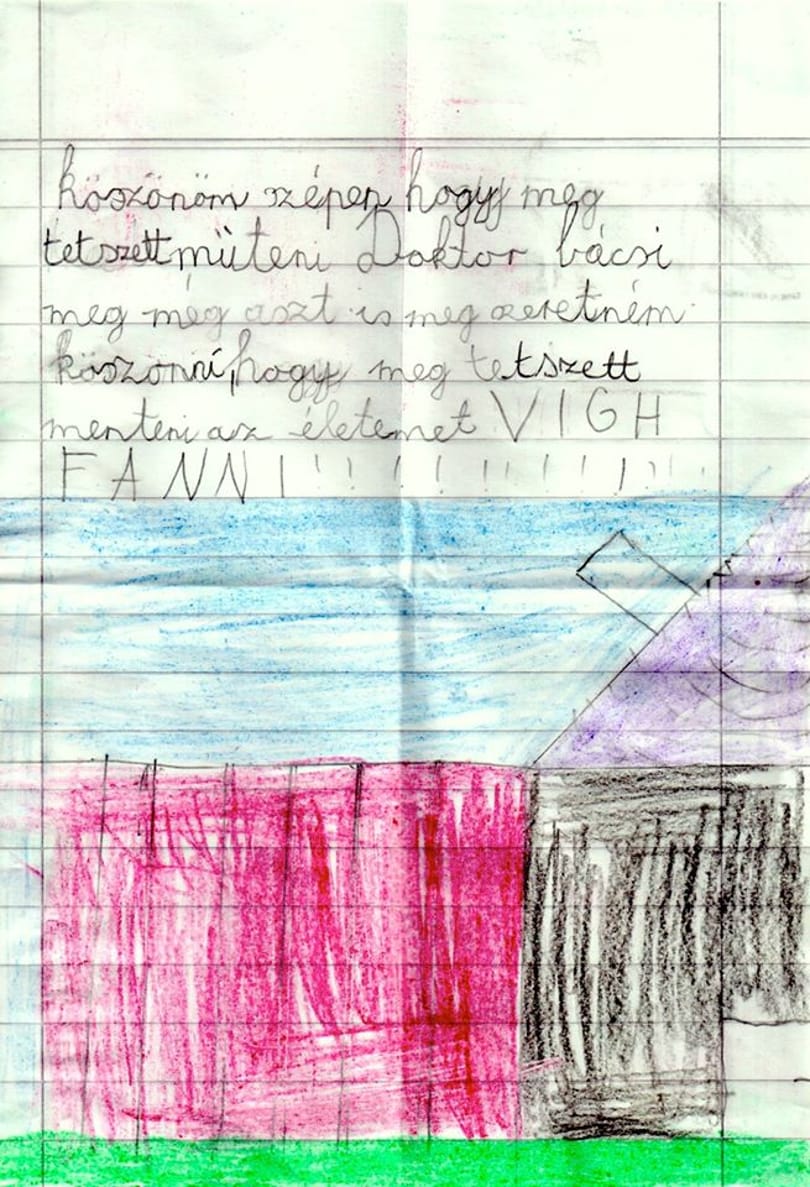 köszönöm szépen hogyj meg
tetszett müteni Doktor bácsi
meg még aszt is meg szeretném
köszönni, hogyj meg tetszett
menteni az életemet VIGH
FANNI!!!!!!!!!!!!!